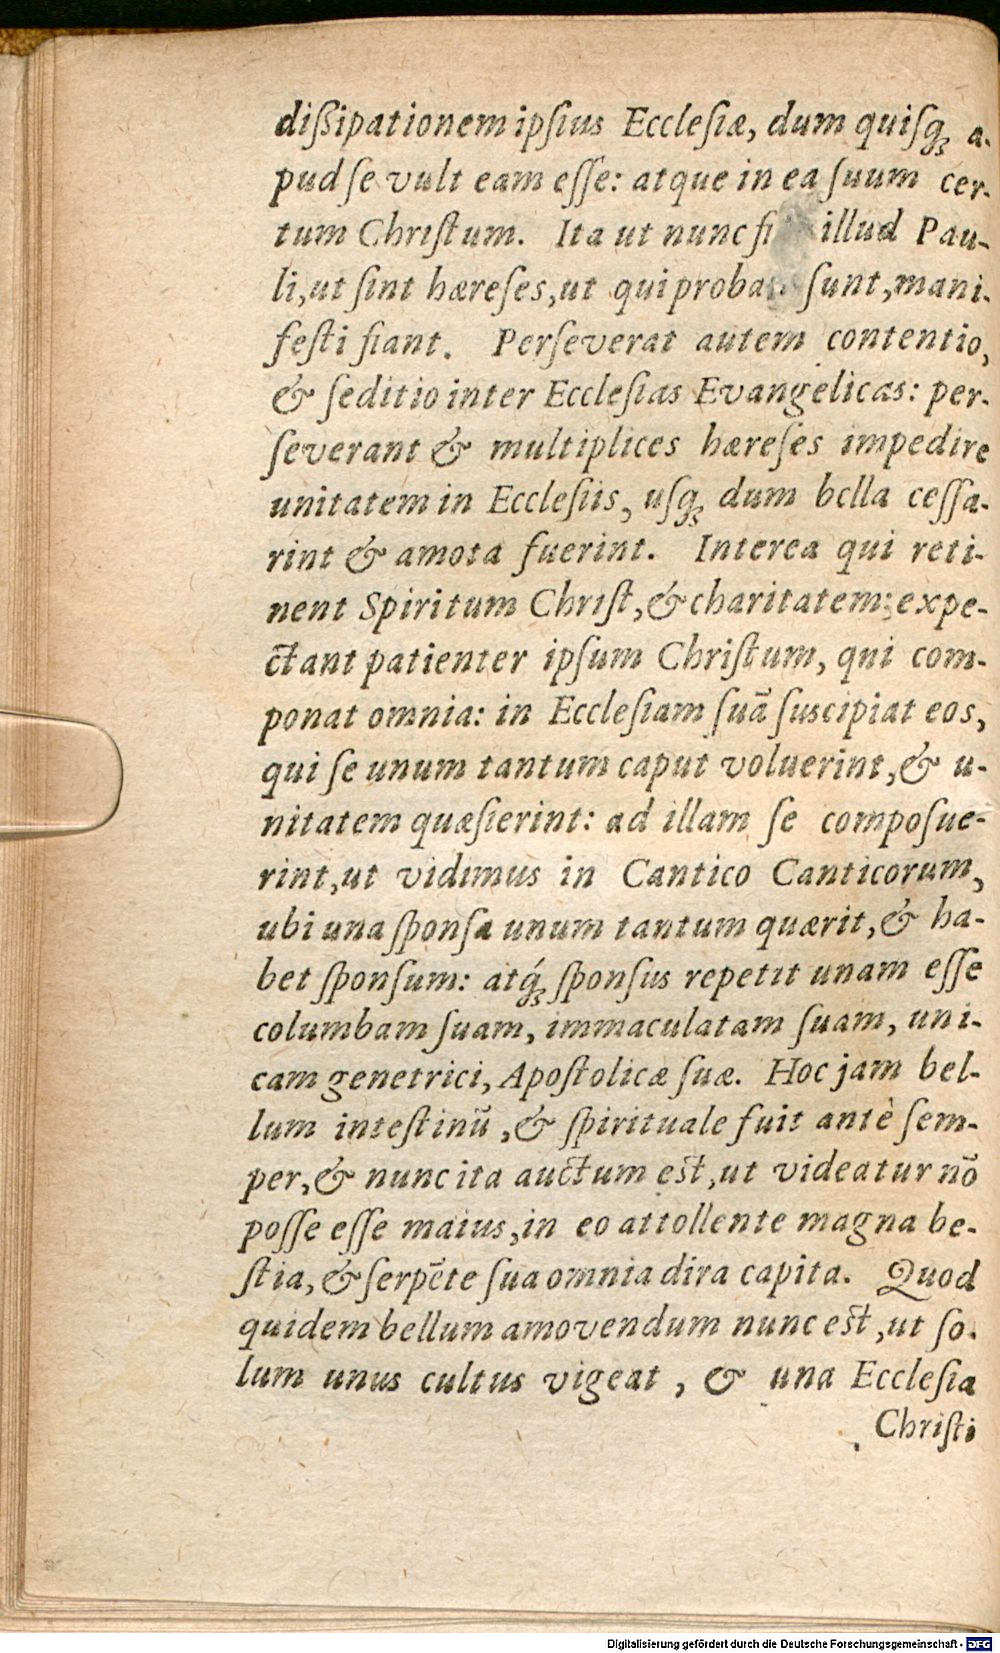 dißipationem ipſius Eccleſiæ, dum quiſq́; a-
pud ſe vult eam eſſe: atque in ea ſuum cer-
tum Chriſtum. Ita ut nunc illud Pau-
li, ut ſint hæreſes, ut qui ſunt, mani-
feſti fiant. Perſeverat autem contentio,
& ſeditio inter Eccleſias Evangelicas: per-
ſeverant & multiplices hæreſes impedire
unitatem in Eccleſiis, uſq; dum bella ceſſa-
rint & amota fuerint. Interea qui reti-
nent Spiritum Chriſt, & charitatem: expe-
ctant patienter ipſum Chriſtum, qui com-
ponat omnia: in Eccleſiam ſuā ſuscipiat eos,
qui ſe unum tantum caput voluerint, & u-
nitatem quæſierint: ad illam ſe compoſue-
rint, ut vidimus in Cantico Canticorum,
ubi una ſponſa unum tantum quærit, & ha-
bet ſponſum: atq́; ſponſus repetit unam eſſe
columbam ſuam, immaculatam ſuam, uni-
cam genetrici, Apoſtolicæ ſuæ. Hoc jam bel-
lum inteſtinū, & ſpirituale fuit antè ſem-
per, & nunc ita auctum eſt, ut videatur nō
poſſe eſſe maius, in eo attollente magna be-
ſtia, & ſerpēte ſua omnia dira capita. Quod
quidem bellum amovendum nunc eſt, ut ſo-
lum unus cultus vigeat, & una Eccleſia
Chriſti
Digitalisierung gefördert durch die Deutsche Forschungsgemeinschaft - DFG